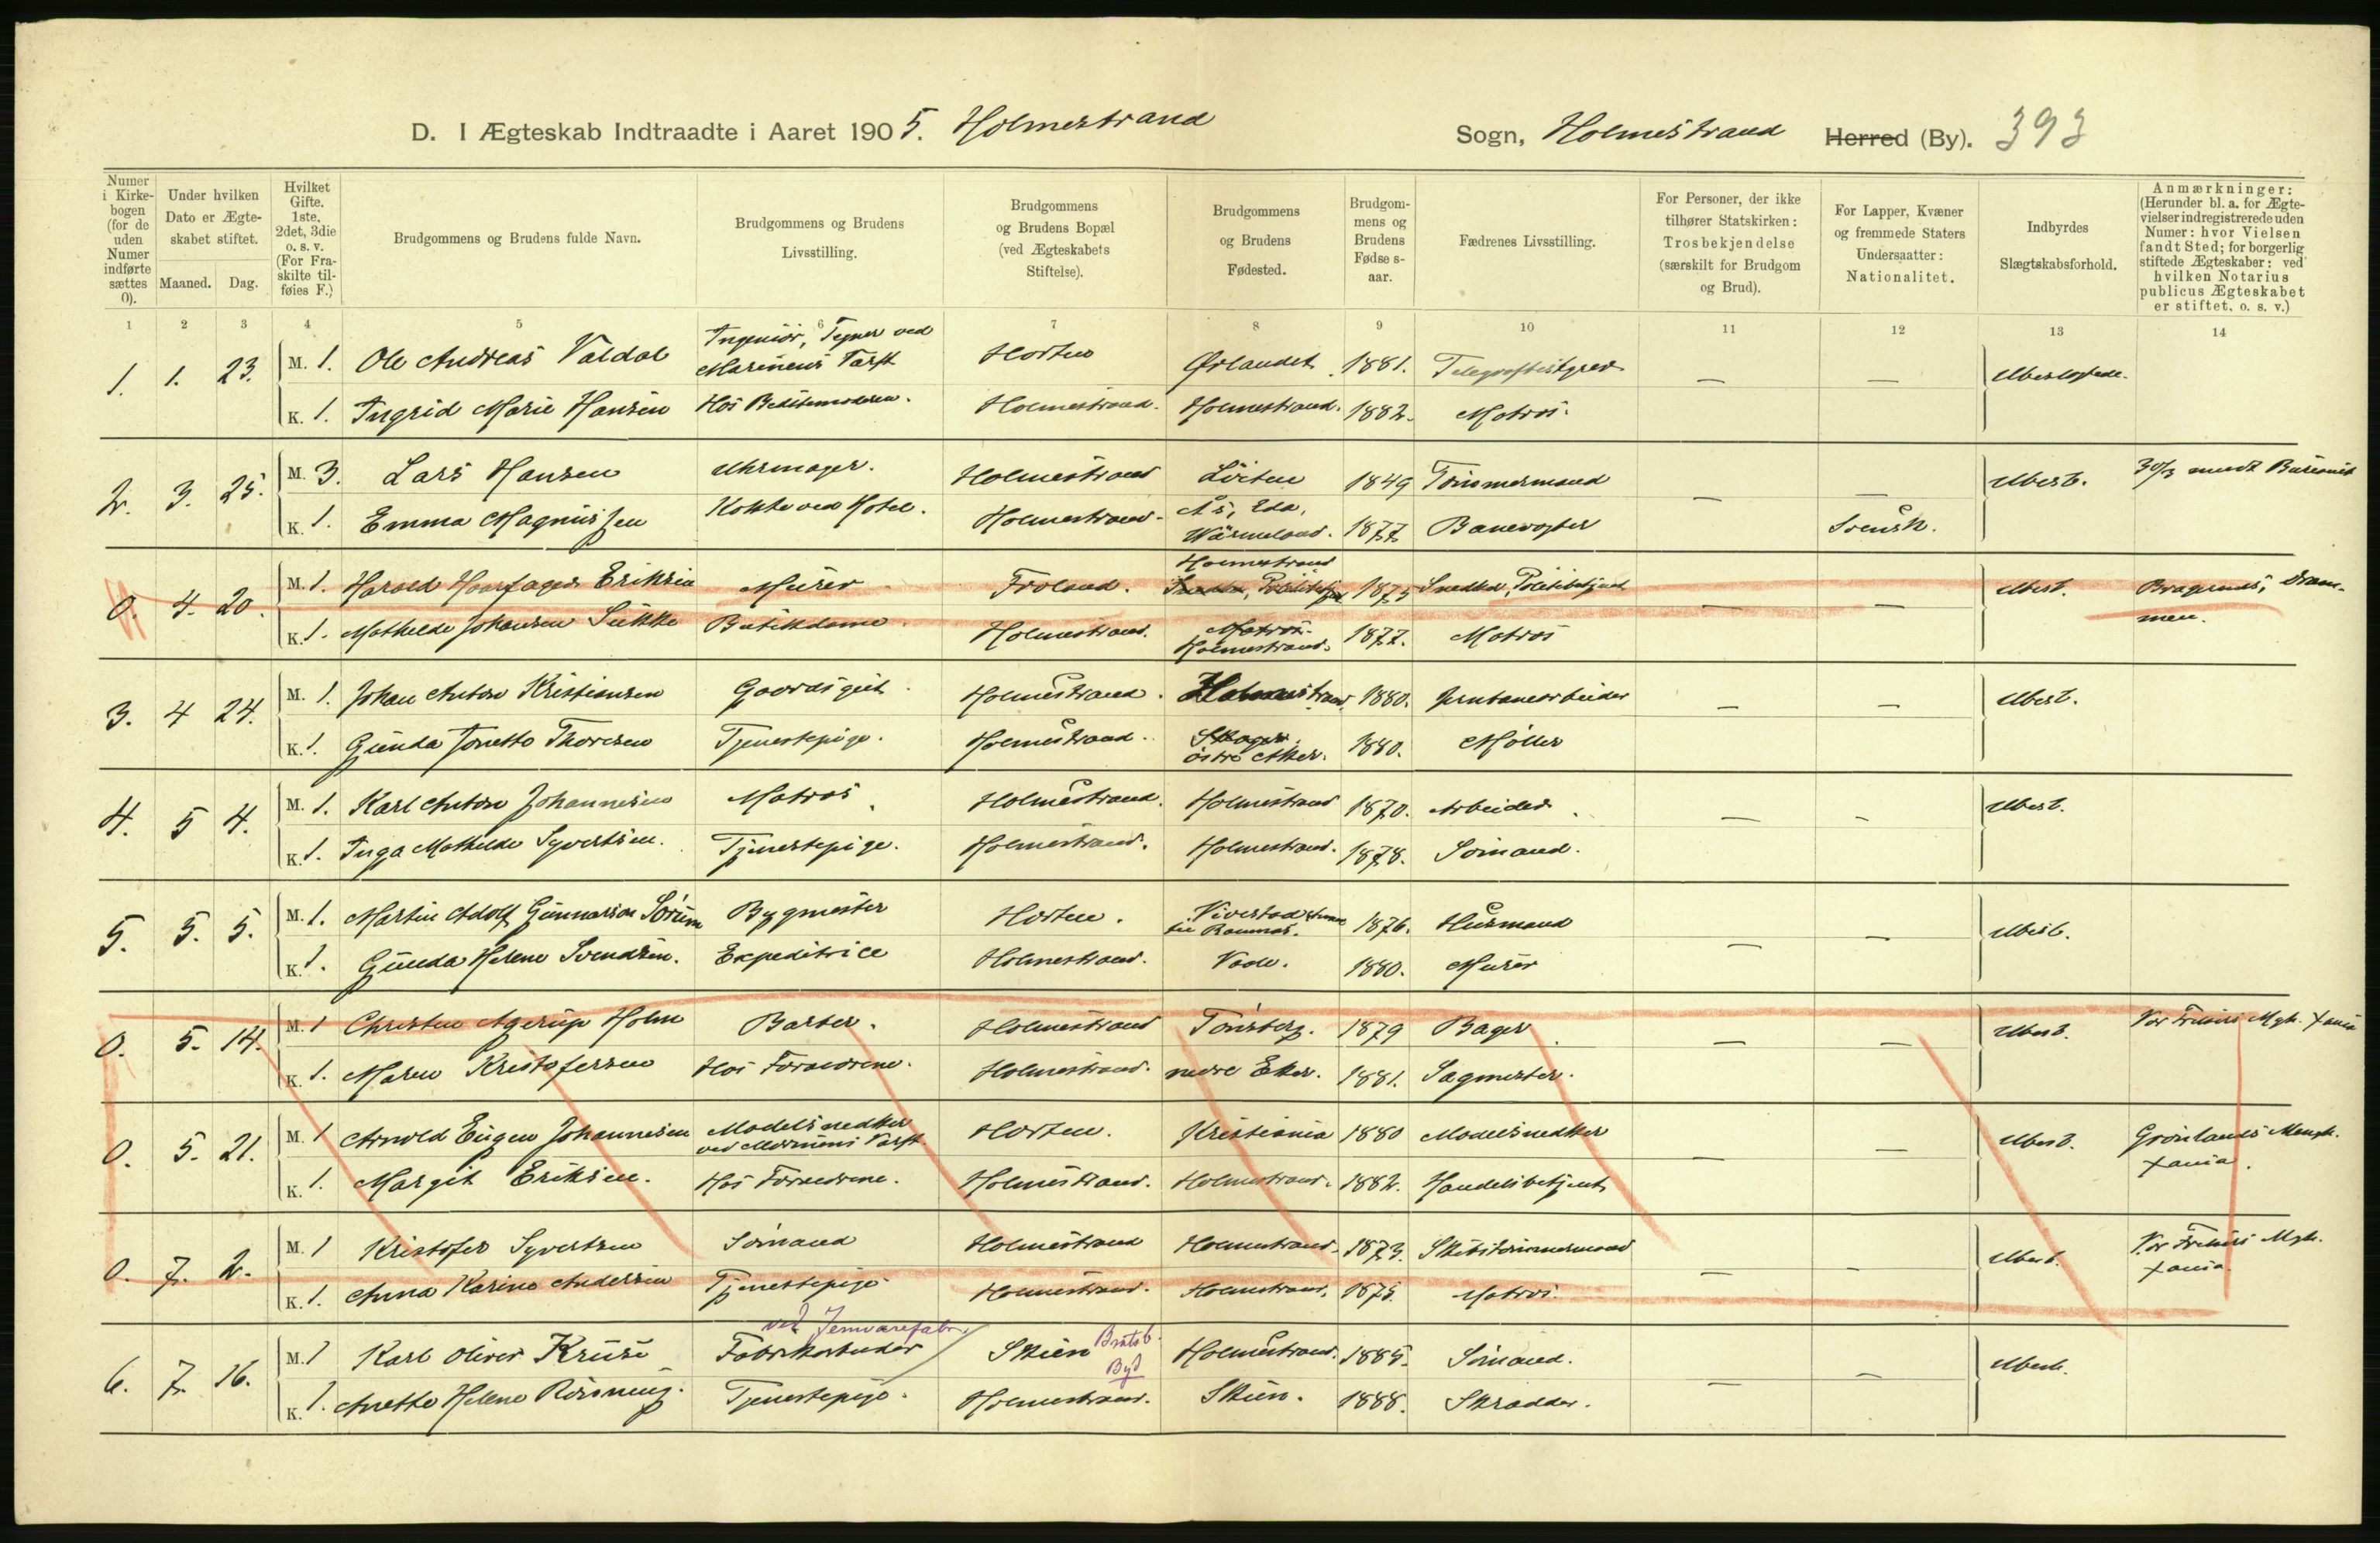 D. I Ægteskab Indtraadte i Aaret 1905. Holmestrand Sogn, Holmestrand Herred (By). 393
Numer i Kirkebogen (for de uden Numer indførte sættes 0).
Under hvilken Dato er Ægteskabet stiftet.
Maaned. Dag.
Hvilket Gifte. 1ste, 2det, 3die o. s. v. (For Fraskilte tilføies F.)
Brudgommens og Brudens fulde Navn.
Brudgommens og Brudens Livsstilling.
Brudgommens og Brudens Bopæl (ved Ægteskabets Stiftelse).
Brudgommens og Brudens Fødested.
Brudgommens og Brudens Fødse s-aar.
Fædrenes Livsstilling.
For Personer, der ikke tilhører Statskirken: Trosbekjendelse (særskilt for Brudgom og Brud).
For Lapper, Kvæner og fremmede Staters Undersaatter: Nationalitet.
Indbyrdes Slægtskabsforhold.
Anmærkninger: (Herunder bl. a. for Ægtevielser indregistrerede uden Numer: hvor Vielsen fandt Sted; for borgerlig stiftede Ægteskaber: ved hvilken Notarius publicus Ægteskabet er stiftet. o. s. v.)
1 2 3 4 5 6 7 8 9 10 11 12 13 14
1. 1. 23. M. 1. Ole Andreas Valdal Ingeniör, Tegner ved Marinens Værft Horten Ørlandet 1881. — — Ubeslægtede.
K. 1. Ingrid Marie Hansen Hos Bedstemoderen. Holmestrand. Holmestrand. 1882. Matros.
2. 3. 25. M. 3. Lars Hansen Uhrmager. Holmestrand Löiten 1849 Tömmermand — — Ubesl. 30/3
K. 1. Emma Magnussen Kokke ved Hotel. Holmestrand. Ås, Eda, Wärmeland. 1877 Banevogter Svensk.
0. 4. 20. M. 1. Harald Haarfager Eriksen Murer Froland. Holmestrand 1875 Snedker, Politibetjent — — Ubesl. Bragernes, Drammen.
K. 1. Mathilde Johansen Sukke Butikdame. Holmestrand. Matros. Holmestrand. 1877. Matros
3. 4 24. M. 1. Johan Anton Kristiansen Gaardsgut. Holmestrand. Holmestrand. 1880. Jernbanearbeider — — Ubesl.
K. 1. Gunda Jonette Thoresen Tjenestepige. Holmestrand. Skoger. östre Aker. 1880. Möller
4. 5 4. M. 1. Karl Anton Johannesen Matros. Holmestrand. Holmestrand 1870. Arbeider. — — Ubesl.
K. 1. Inga Mathilde Syvertsen. Tjenestepige. Holmestrand. Holmestrand. 1878. Sömand.
5. 5. 5. M. 1. Martin Adolf Gunnarson Sörum Bygmester Horten. Vivestad til Ramnæs. 1876. Husmand — — Ubesl.
K. 1. Gunda Helene Svendsen. Expeditrice Holmestrand. Vaale. 1880. Murer
0. 5. 14. M. 1 Christen Agerup Holm Barber. Holmestrand Tönsberg. 1879 Bager. — — Ubesl. Vor Frelsers Mgh. Xania
K. 1. Maren Kristofersen Hos Forældrene. Holmestrand. nedre Eker. 1881. Sagmester.
0. 5. 21. M. 1 Arnold Eugen Johannesen Modelsnedker ved Marinens Værft. Horten. Kristiania 1880 Modelsnedker — — Ubesl. Grönlands Menigh. Xania.
K. 1. Margit Eriksen. Hos Forældrene. Holmestrand. Holmestrand. 1882. Handelsbetjent
0. 7. 2. M. 1 Kristofer Syvertsen Sömand Holmestrand Holmestrand. 1873. Skibstömmermand — — Ubesl. Vor Frelsers Mgh. Xania.
K. 1. Anna Karine Andersen Tjenestepige Holmestrand. Holmestrand. 1875. Matros.
6. 7. 16. M. 1 Karl Oliver Kruse ved Jernvarefabr. Fabrikarbeider Skien Bratsb. Byd Holmestrand. 1885. Sömand. — — Ubesl.
K. 1. Anette Helene Rösning. Tjenestepige. Holmestrand. Skien. 1888. Skrædder.